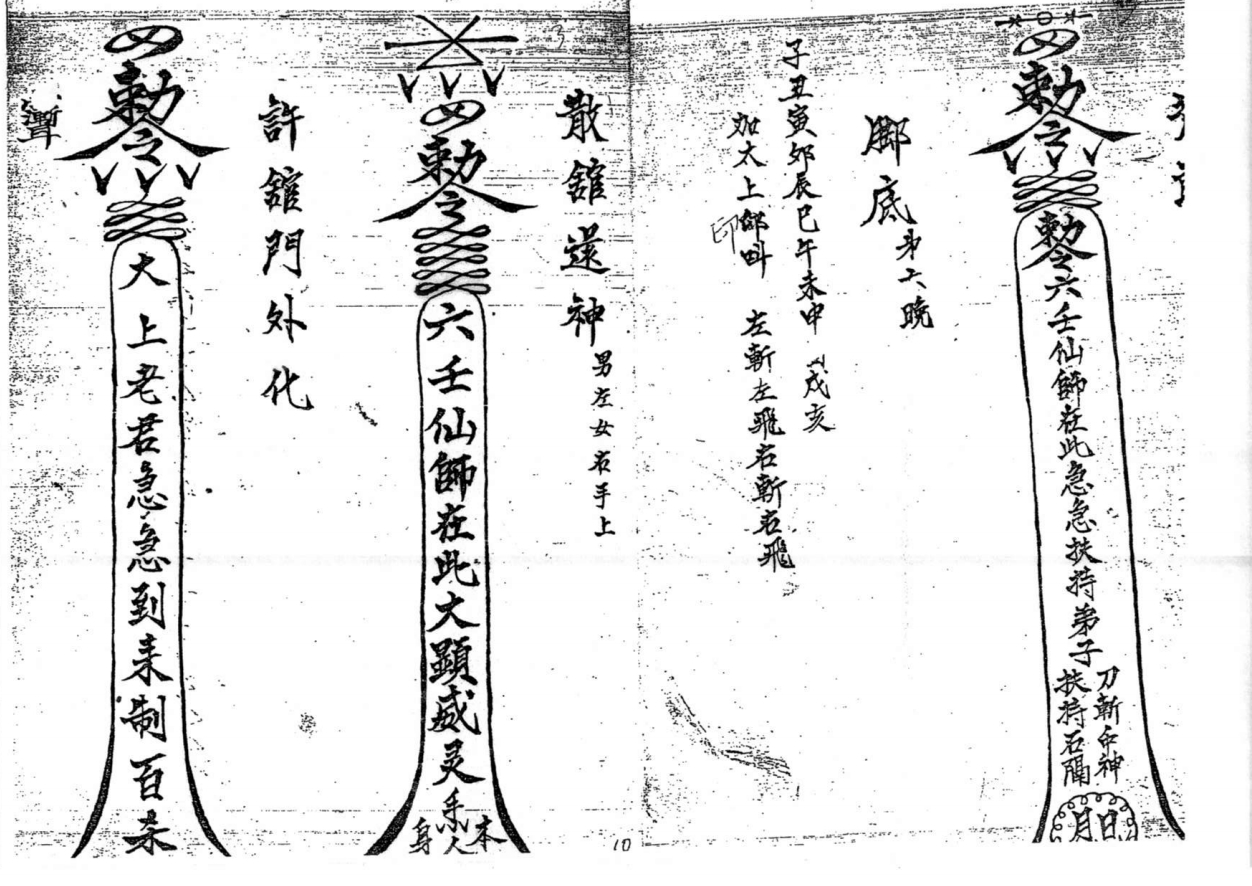 勅令
勅令六壬仙師在此急急扶持弟子
刀斬 神
扶持石
日月
脚底 第六晚
子丑寅卯辰巳午未申 戌亥
加太上 印
左斬左飛右斬右飛
散舘送神 男左女右手上
勅令
六壬仙師在此大顯威灵
本人身
10
許舘門外化
勅令
大上老君急急到来制百杀